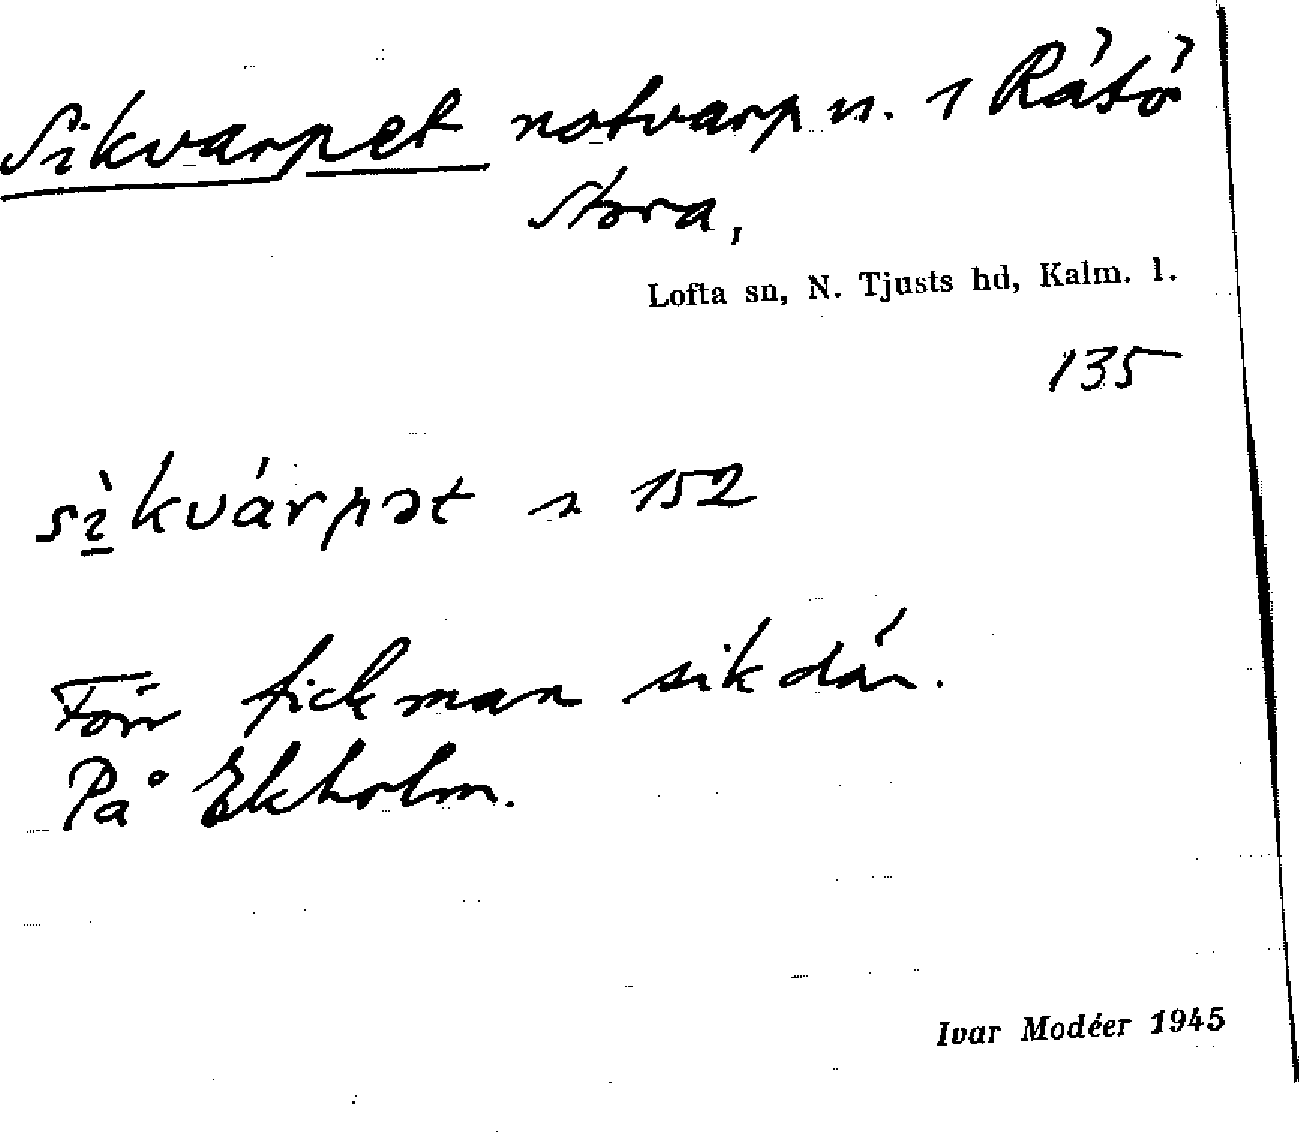 Sikvarpet notvarp n. 1 Råtö
Stora,
Lofta sn, N. Tjusts hd, Kalm. l.
135
sìkvárpət 152
Förr fick man sik där.
På Ekholm.
Ivar Modéer 1945